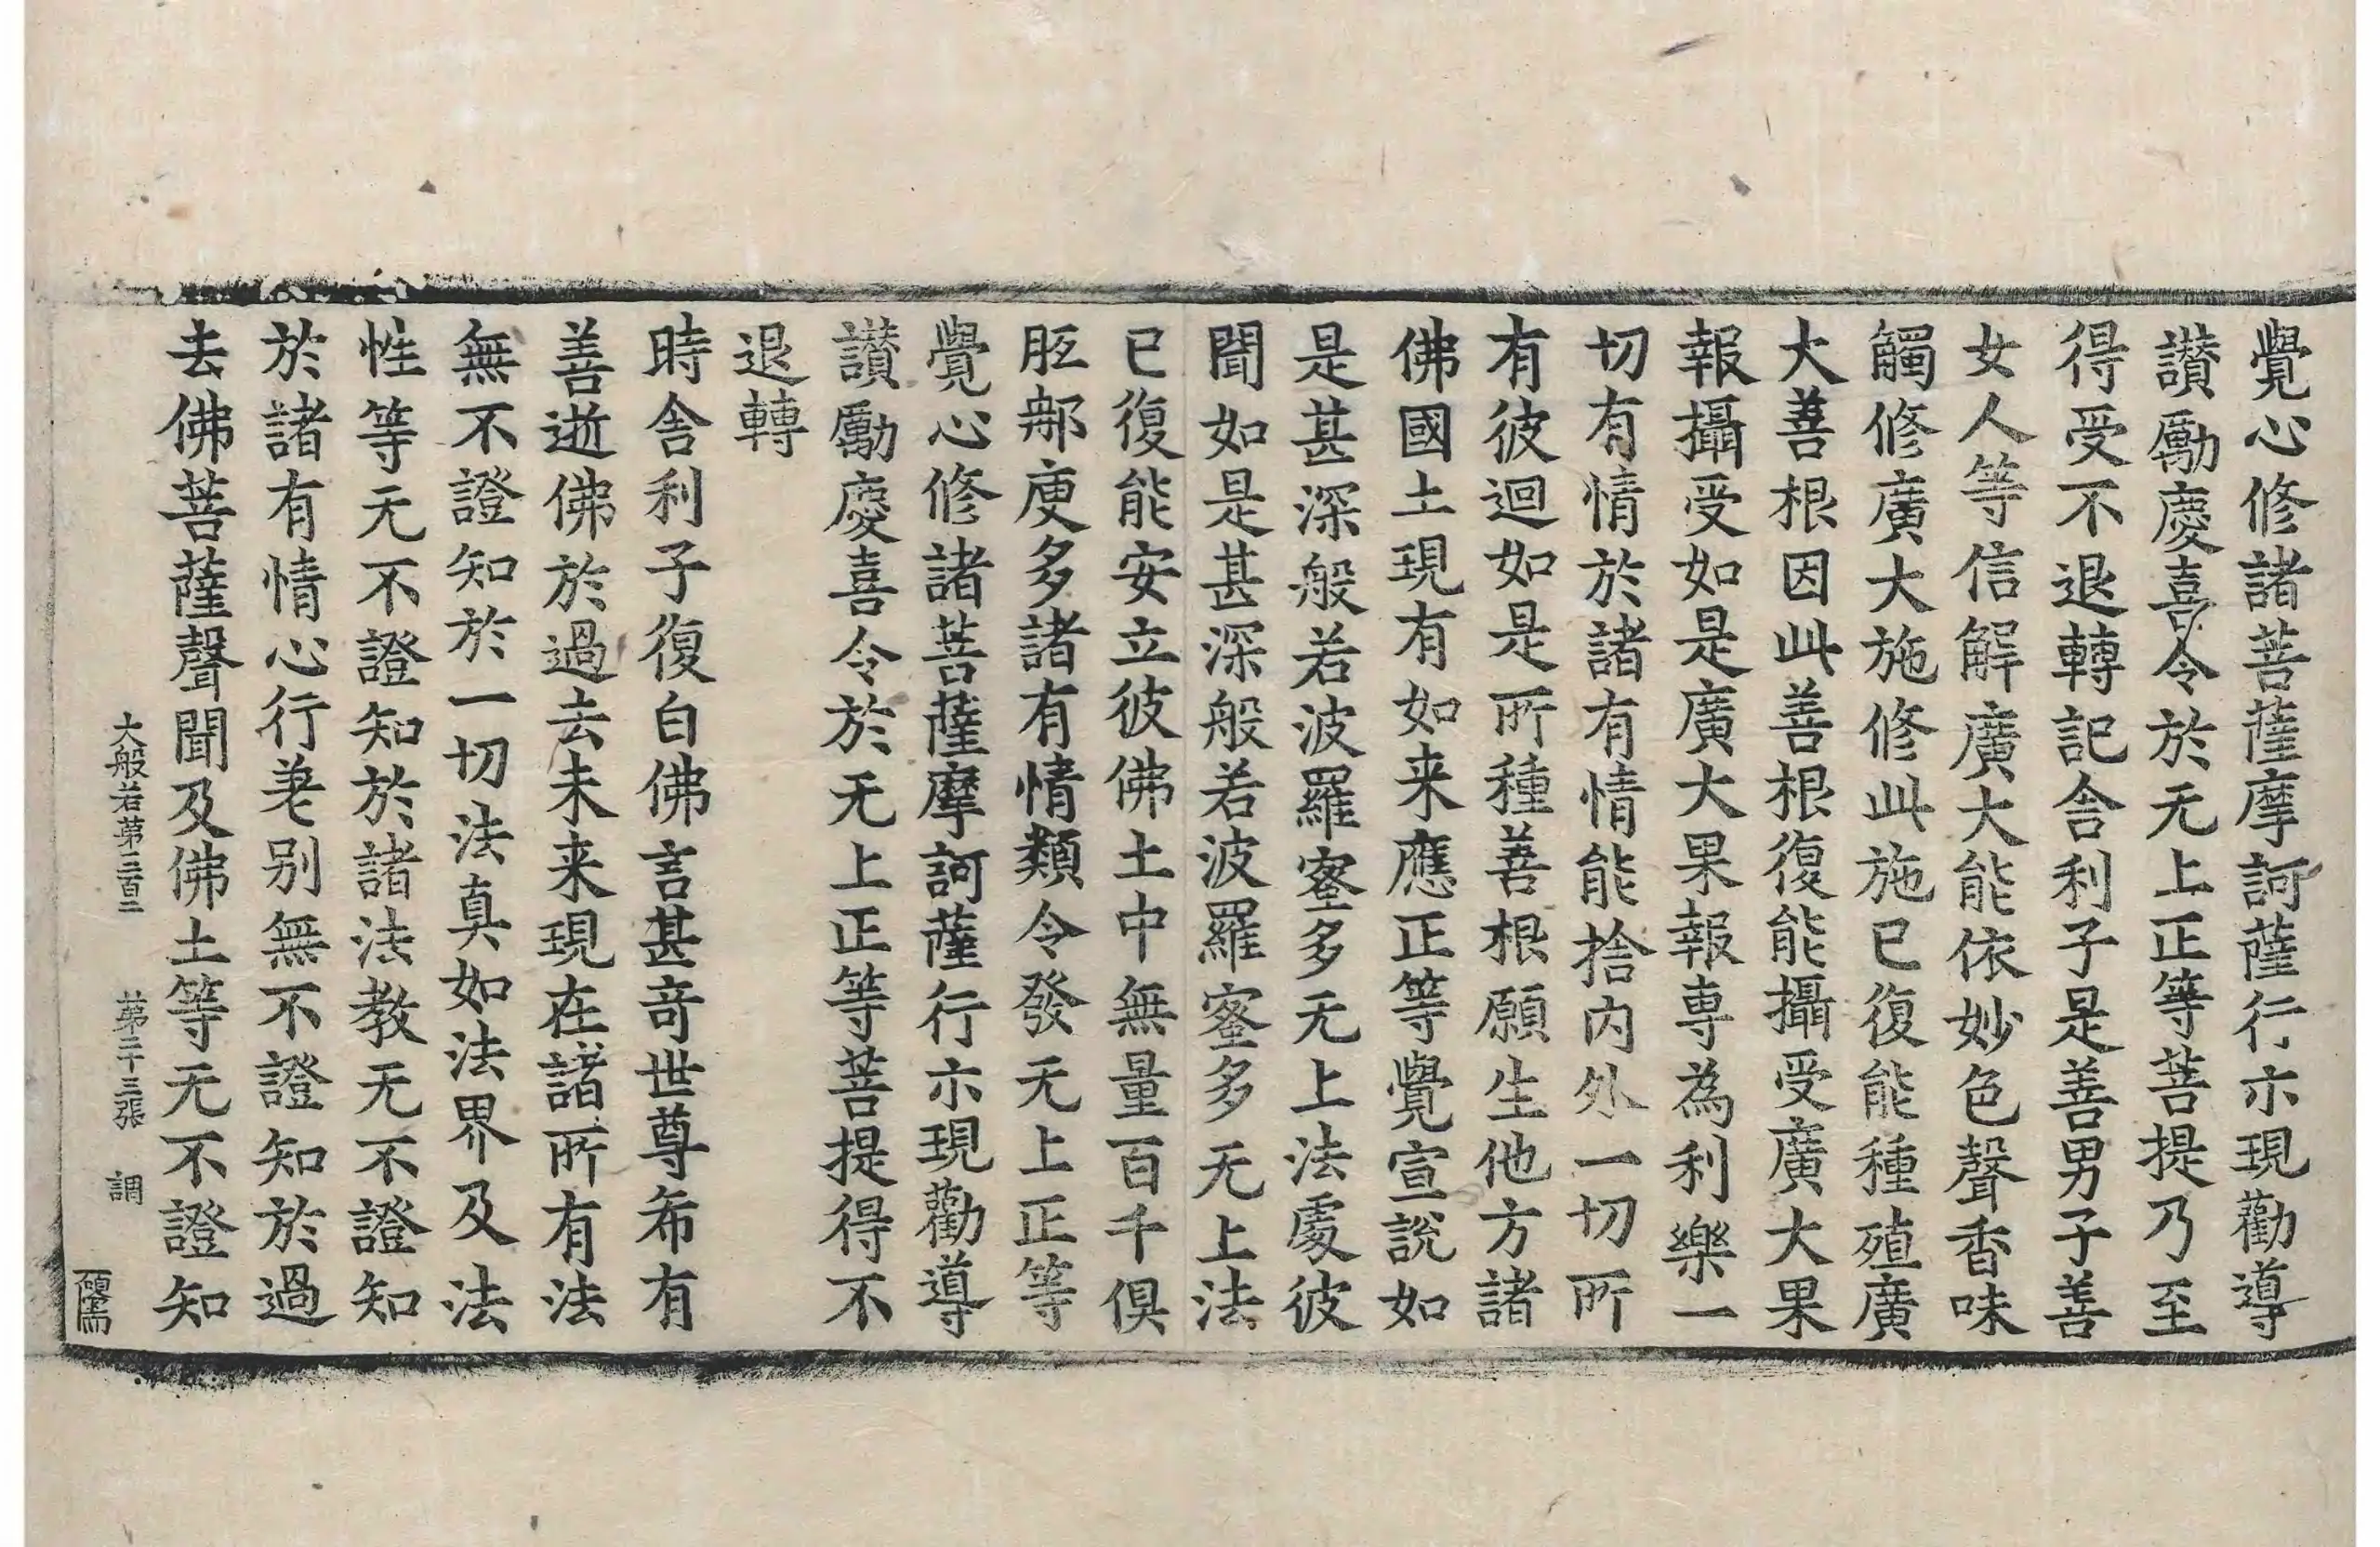 覺心修諸菩薩摩訶薩行示現勸導
讃勵慶喜令於无上正等菩提乃至
得受不退轉記舎利子是善男子善
女人等信解廣大能依妙色聲香味
觸修廣大施修此施已復能種殖廣
大善根因此善根復能攝受廣大果
報攝受如是廣大果報専為利樂一
切有情於諸有情能捨内外一切所
有彼迴如是所種善根願生他方諸
佛國土現有如来應正等覺宣說如
是甚深般若波羅蜜多无上法處彼
聞如是甚深般若波羅蜜多无上法
已復能安立彼佛土中無量百千俱
胝那庾多諸有情類令發无上正等
覺心修諸菩薩摩訶薩行示現勸導
讃勵慶喜令於无上正等菩提得不
退轉
時舎利子復白佛言甚奇世尊希有
善逝佛於過去未来現在諸所有法
無不證知於一切法真如法界及法
性等无不證知於諸法教无不證知
於諸有情心行差別無不證知於過
去佛菩薩聲聞及佛土等无不證知
大般若第三百二 第二十三張 調